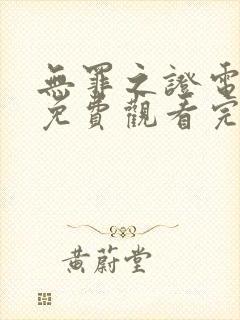 無罪之證電
免費觀看完
黃蔚堂